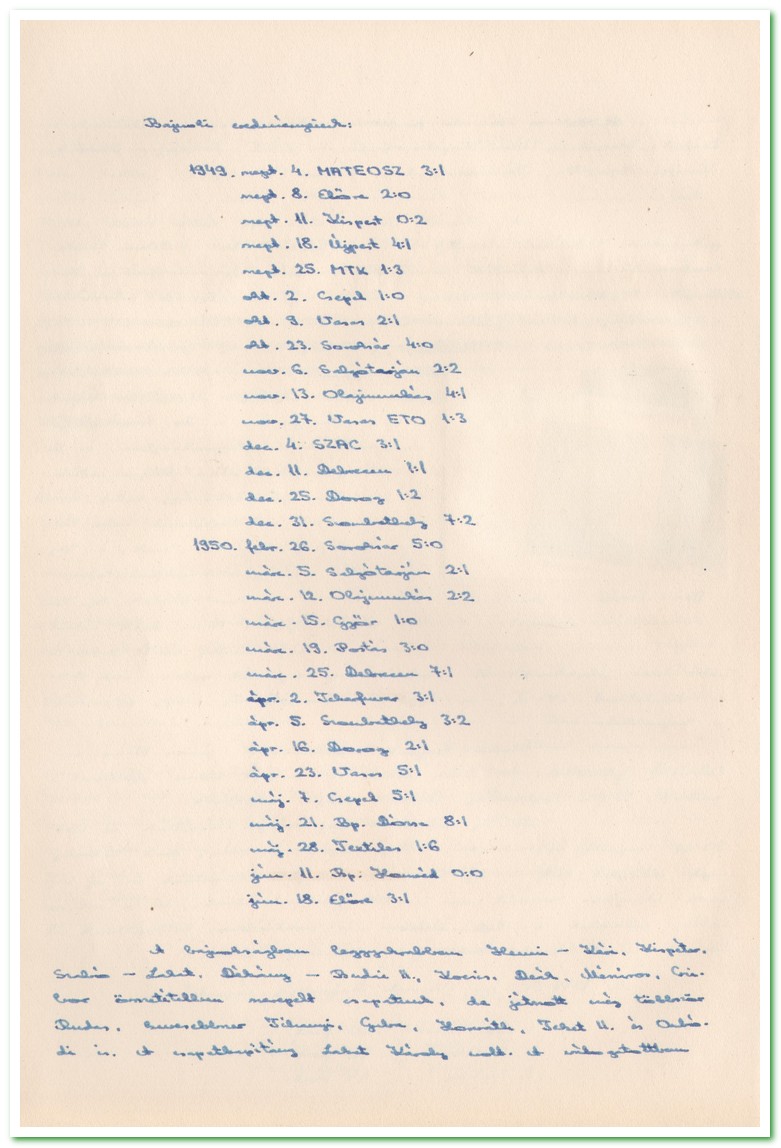 Bajnoki eredményeink:
1949. szept. 4. MATEOSZ 3:1
szept. 8. Előre 2:0
szept. 11. Kispest 0:2
szept. 18. Újpest 4:1
szept. 25. MTK 1:3
okt. 2. Csepel 1:0
okt. 9. Vasas 2:1
okt. 23. Soroksár 4:0
nov. 6. Salgótarján 2:2
nov. 13. Olajmunkás 4:1
nov. 27. Vasas ETO 1:3
dec. 4. SZAC 3:1
dec. 11. Debrecen 1:1
dec. 25. Dorog 1:2
dec. 31. Szombathely 7:2
1950. febr. 26. Soroksár 5:0
márc. 5. Salgótarján 2:1
márc. 12. Olajmunkás 2:2
márc. 15. Győr 1:0
márc. 19. Postás 3:0
márc. 25. Debrecen 7:1
ápr. 2. Teherfuvar 3:1
ápr. 5. Szombathely 3:2
ápr. 16. Dorog 2:1
ápr. 23. Vasas 5:1
máj. 7. Csepel 5:1
máj. 21. Bp. Dózsa 8:1
máj. 28. Textiles 1:6
jún. 11. Bp. Honvéd 0:0
jún. 18. Előre 3:1
A bajnokságban leggyakrabban Henni - Kéri, Kispéter,
Szabó - Lakat, Dékány - Budai II., Kocsis, Deák, Mészáros, Czi-
bor összetétellen szerepelt csapatunk, de játszott még többször
Rudas, kevesebbszer Tihanyi, Gulva, Horváth, Tekei II. és Ombó-
di is. A csapatkapitány Lakat Károly volt. A válogatottban